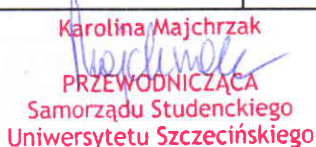 Karolina Majchrzak
PRZEWODNICZĄCA
Samorządu Studenckiego
Uniwersytetu Szczecińskiego